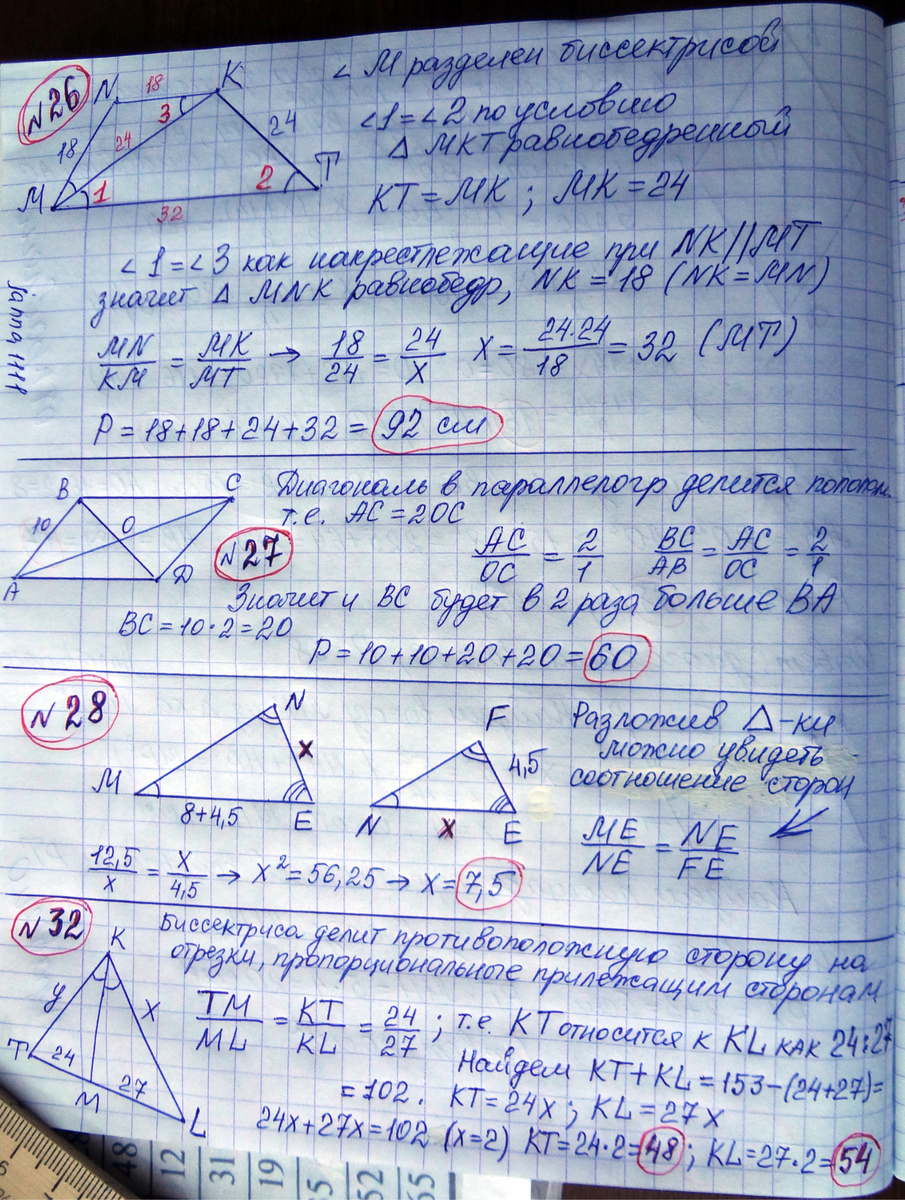 N26
N 18 K
∠ M разделен биссектрисой
∠1=∠2 по условию
Δ МКТ равнобедренный
KT = MK ; MK = 24
18 24 3 24
M 1 2 T
32
∠1=∠3 как накрестлежащие при NK||MT
значит Δ MNK равнобедр, NK = 18 (NK = MN)
MN/KM = MK/MT → 18/24 = 24/X X = 24·24/18 = 32 (MT)
P = 18+18+24+32 = 92 см
Janna1111
B C
10 O
A D
N27
Диагональ в параллелогр делится пополам
т.е. AC = 2OC
AC/OC = 2/1 BC/AB = AC/OC = 2/1
Значит и BC будет в 2 раза больше BA
BC = 10·2 = 20
P = 10+10+20+20 = 60
N28
N
M X
8+4,5 E
F
4,5
N X E
Разложив Δ-ки
можно увидеть
соотношение сторон
ME/NE = NE/FE
12,5/x = X/4,5 → X² = 56,25 → X = 7,5
N32
Биссектриса делит противоположную сторону на
отрезки, пропорциональные прилежащим сторонам
K
y x
T 24 M 27 L
TM/ML = KT/KL = 24/27 ; т.е. KT относится к KL как 24:27
Найдем KT + KL = 153-(24+27)=
= 102. KT = 24x ; KL = 27x
24x+27x=102 (x=2) KT=24·2=48 ; KL=27·2=54
48
12
31
19
55
52
55